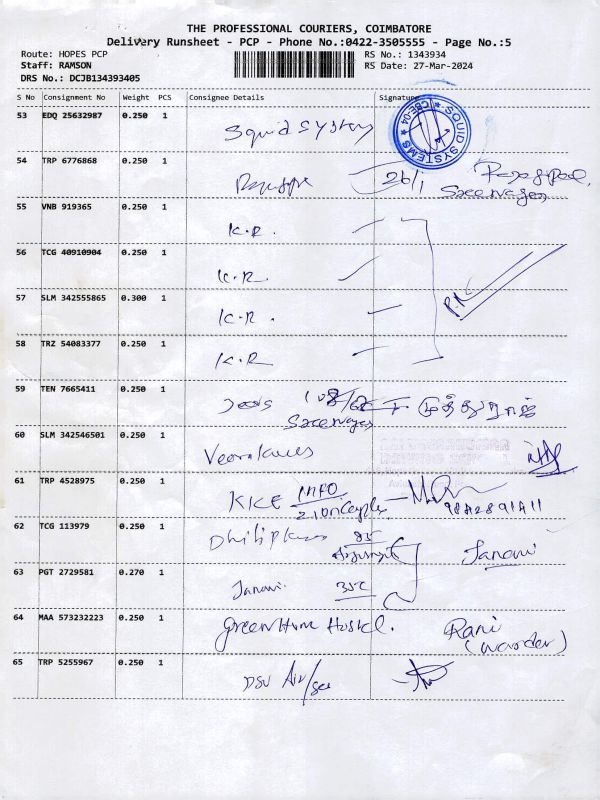 THE PROFESSIONAL COURIERS, COIMBATORE
Delivery Runsheet - PCP - Phone No.:0422-3505555 - Page No.:5
Route: HOPES PCP
RS No.: 1343934
Staff: RAMSON
RS Date: 27-Mar-2024
DRS No.: DCJB134393405
S No Consignment No Weight PCS Consignee Details Signature
53 EDQ 25632987 0.250 1 Squid System
SQUID SYSTEMS * CBE-04 *
54 TRP 6776868 0.250 1 26/1
55 VNB 919365 0.250 1 K.R.
56 TCG 40910904 0.250 1 K.R.
57 SLM 342555865 0.300 1 K.R.
58 TRZ 54083377 0.250 1 K.R
59 TEN 7665411 0.250 1 முத்துராஜ்
60 SLM 342546501 0.250 1
61 TRP 4528975 0.250 1 INFO
9842891411
62 TCG 113979 0.250 1 Janani
63 PGT 2729581 0.270 1 Janani 35C
64 MAA 573232223 0.250 1 Green Home Hostel. Rani
(Warden)
65 TRP 5255967 0.250 1 DSV Air/Sea